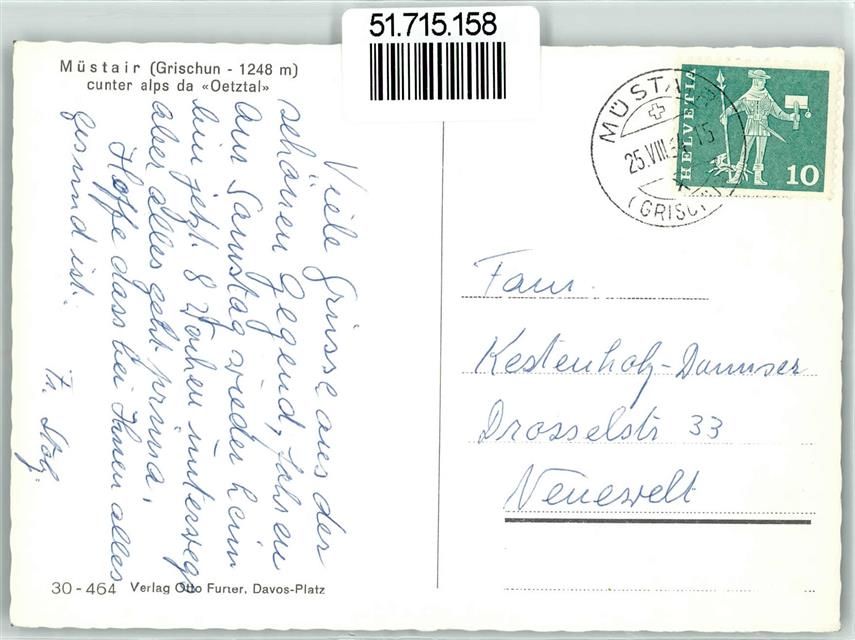 51.715.158
Müstair (Grischun - 1248 m)
cunter alps da «Oetztal»
Viele Grüsse aus der
schönen Gegend, fahren
am Samstag wieder heim
bin jetzt 8 Wochen unterwegs
aber alles geht prima.
Hoffe dass bei Ihnen alles
gesund ist.
Fr. Stolz.
30-464 Verlag Otto Furter, Davos-Platz
MÜSTAIR
25.VIII.
(GRISCH
HELVETIA
10
Fam.
Kestenholz-Danuser
Drosselstr 33
Neuewelt